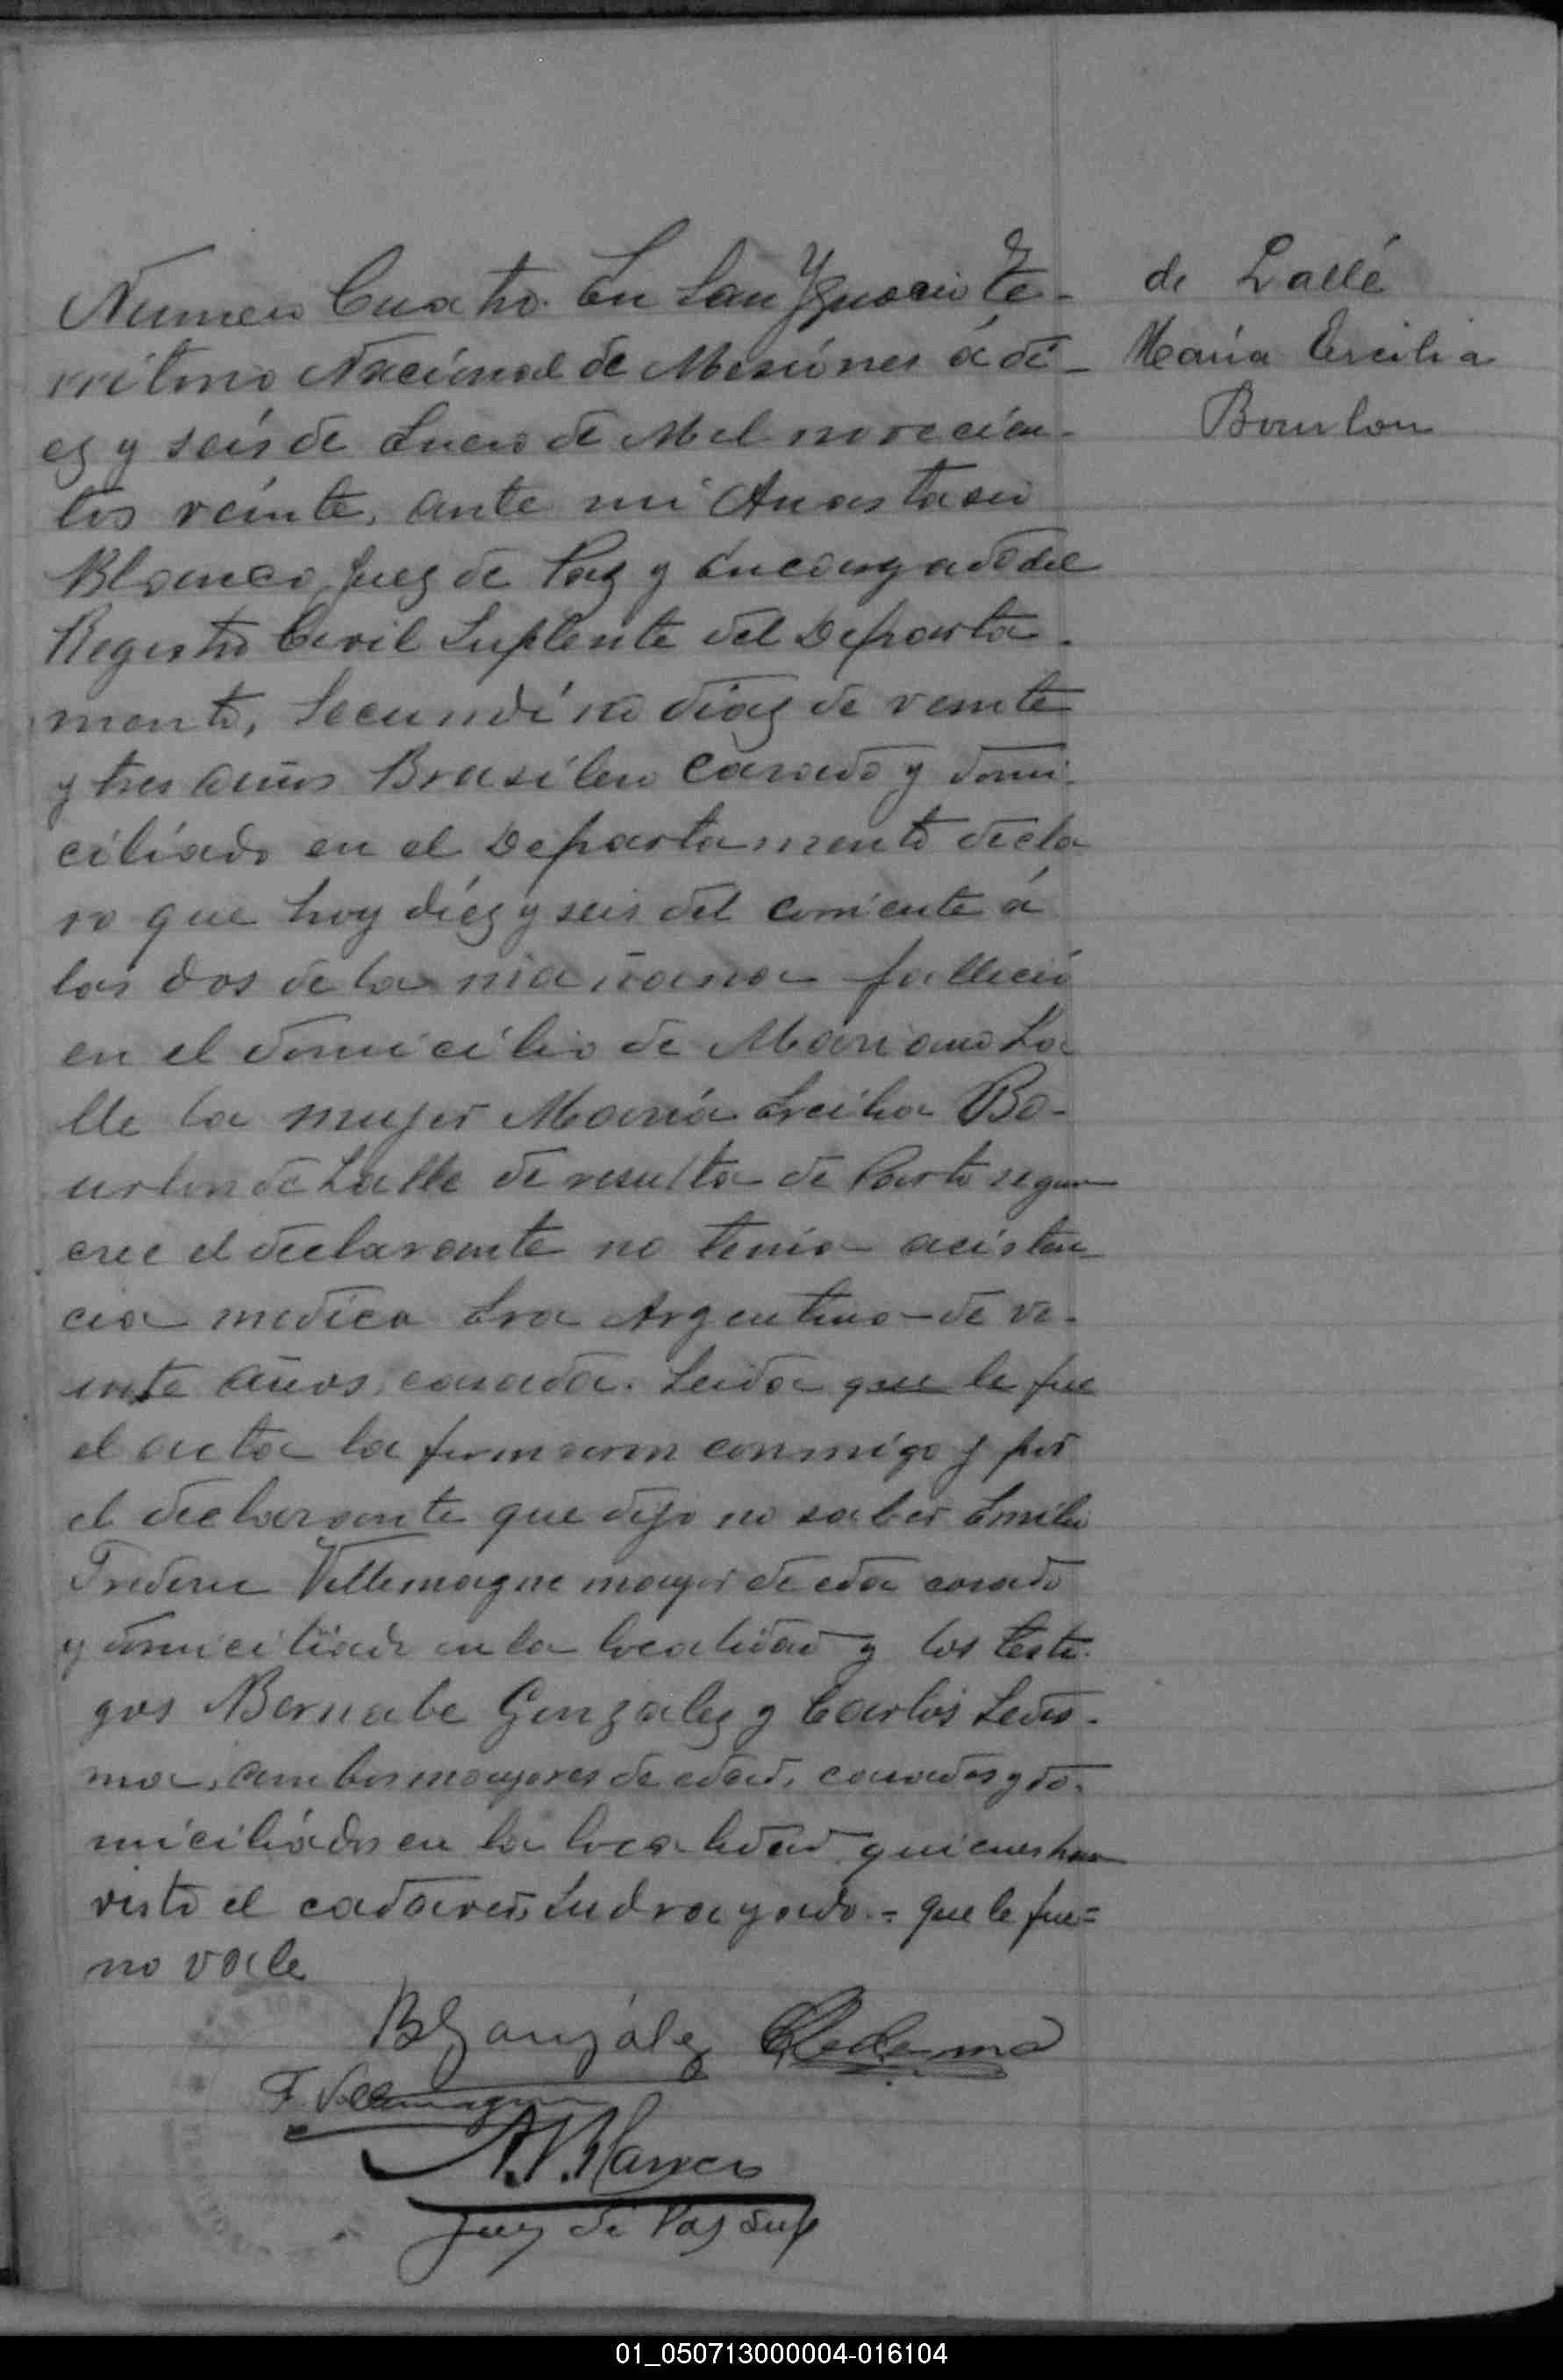 de Lallé
Maria Ercilia
Bourlon
Numero Cuatro. En San Ygnacio Te-
rritorio Nacional de Misiónes á di-
ez y seis de Enero de Mil novecien-
tos veinte, ante mi Anastasio
Blanco, Juez de Paz y Encargado del
Registro Civil Suplente del Departa-
mento, Secundíno diaz de veinte
y tres años Brasilero Casado y domi-
ciliado en el Departamento decla
ro que hoy diéz y seis del corriente á
las dos de la mañana falleció
en el domicilio de Mariano La
lle la mujer María Ercilia Bo-
urlon de Lalle de resulta de Parto segun
cree el declarante no tenia acisten
cia medica Era Argentina de ve-
inte años, casada. Leida que le fue
el acta la firmaron conmigo y por
el declarante que dijo no saber Emilio
Frederic Villemagne mayor de eda casado
y domiciliado en la localidad y los testi-
gos Bernabe Gonzalez y Carlos Ledes-
ma, ambos mayores de edad, casados y do-
miciliádos en la localidad quienes han
visto el cadaver, Sudrayado.= que le fue=
no vale
B Gonzálež CLedesma
F. Villemagne
A. Blanco
Juez de Paz Sup
01_050713000004-016104